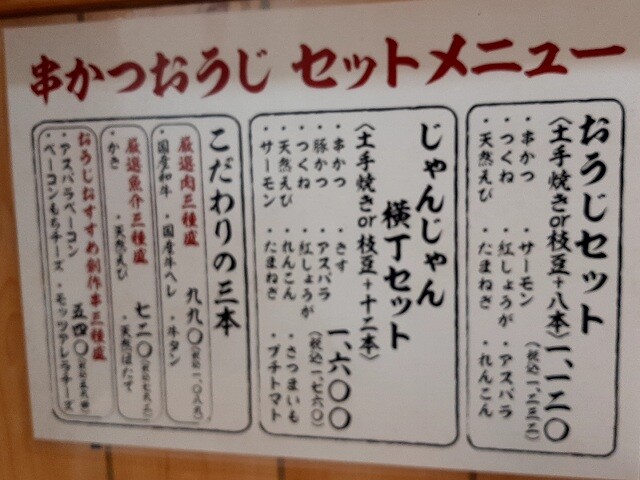 串かつおうじ セットメニュー
おうじセット
〈土手焼きor枝豆+八本〉一、一二〇
(税込一、二三二)
・串かつ ・サーモン ・アスパラ
・つくね ・紅しょうが ・れんこん
・天然えび ・たまねぎ
じゃんじゃん
横丁セット
〈土手焼きor枝豆+十二本〉
一、六〇〇
(税込一、七六〇)
・串かつ ・きす
・豚かつ ・アスパラ
・つくね ・紅しょうが
・天然えび ・れんこん ・さつまいも
・サーモン ・たまねぎ ・プチトマト
こだわりの三本
厳選肉三種盛 九九〇(税込一、〇八九)
・国産和牛 ・国産牛ヘレ ・牛タン
厳選魚介三種盛 七二〇(税込七九二)
・かき ・天然えび ・天然ほたて
おうじおすすめ創作串三種盛 五四〇(税込五九四)
・アスパラベーコン ・モッツァレラチーズ
・ベーコンもちチーズ